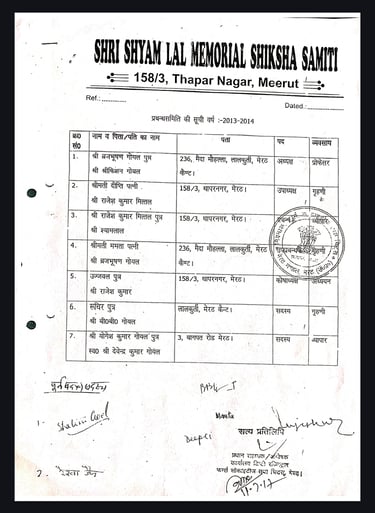 SHRI SHYAM LAL MEMORIAL SHIKSHA SAMITI
158/3, Thapar Nagar, Meerut
Ref.:
Dated:
प्रबन्धसमिति की सूची वर्ष :-2013-2014
क्र0 सं0 नाम व पिता/पति का नाम पता पद व्यवसाय
1. श्री ब्रजभूषण गोयल पुत्र 236, मैदा मोहल्ला, लालकुर्ती, मेरठ अध्यक्ष प्रोफेसर
श्री श्रीकिशन गोयल कैन्ट।
2. श्रीमती दीप्ति पत्नी 158/3, थापरनगर, मेरठ। उपाध्यक्ष गृहणी
श्री राजेश कुमार मित्तल
3. श्री राजेश कुमार मित्तल पुत्र 158/3, थापरनगर, मेरठ। व्यापार
श्री श्यामलाल
4. श्रीमती ममता पत्नी 236, मैदा मोहल्ला, लालकुर्ती, मेरठ गृहणी
श्री ब्रजभूषण गोयल कैन्ट।
5. उज्जवल पुत्र 158/3, थापरनगर, मेरठ। कोषाध्यक्ष अध्ययन
श्री राजेश कुमार
6. रूचिर पुत्र लालकुर्ती, मेरठ कैन्ट। सदस्य गृहणी
श्री बी0बी0 गोयल
7. श्री योगेश कुमार गोयल पुत्र 3, बागपत रोड मेरठ। सदस्य व्यापार
स्व0 श्री देवेन्द्र कुमार गोयल
1. Shalini Goel
Mamta
Deepti
सत्य प्रतिलिपि
2.
11.7.17